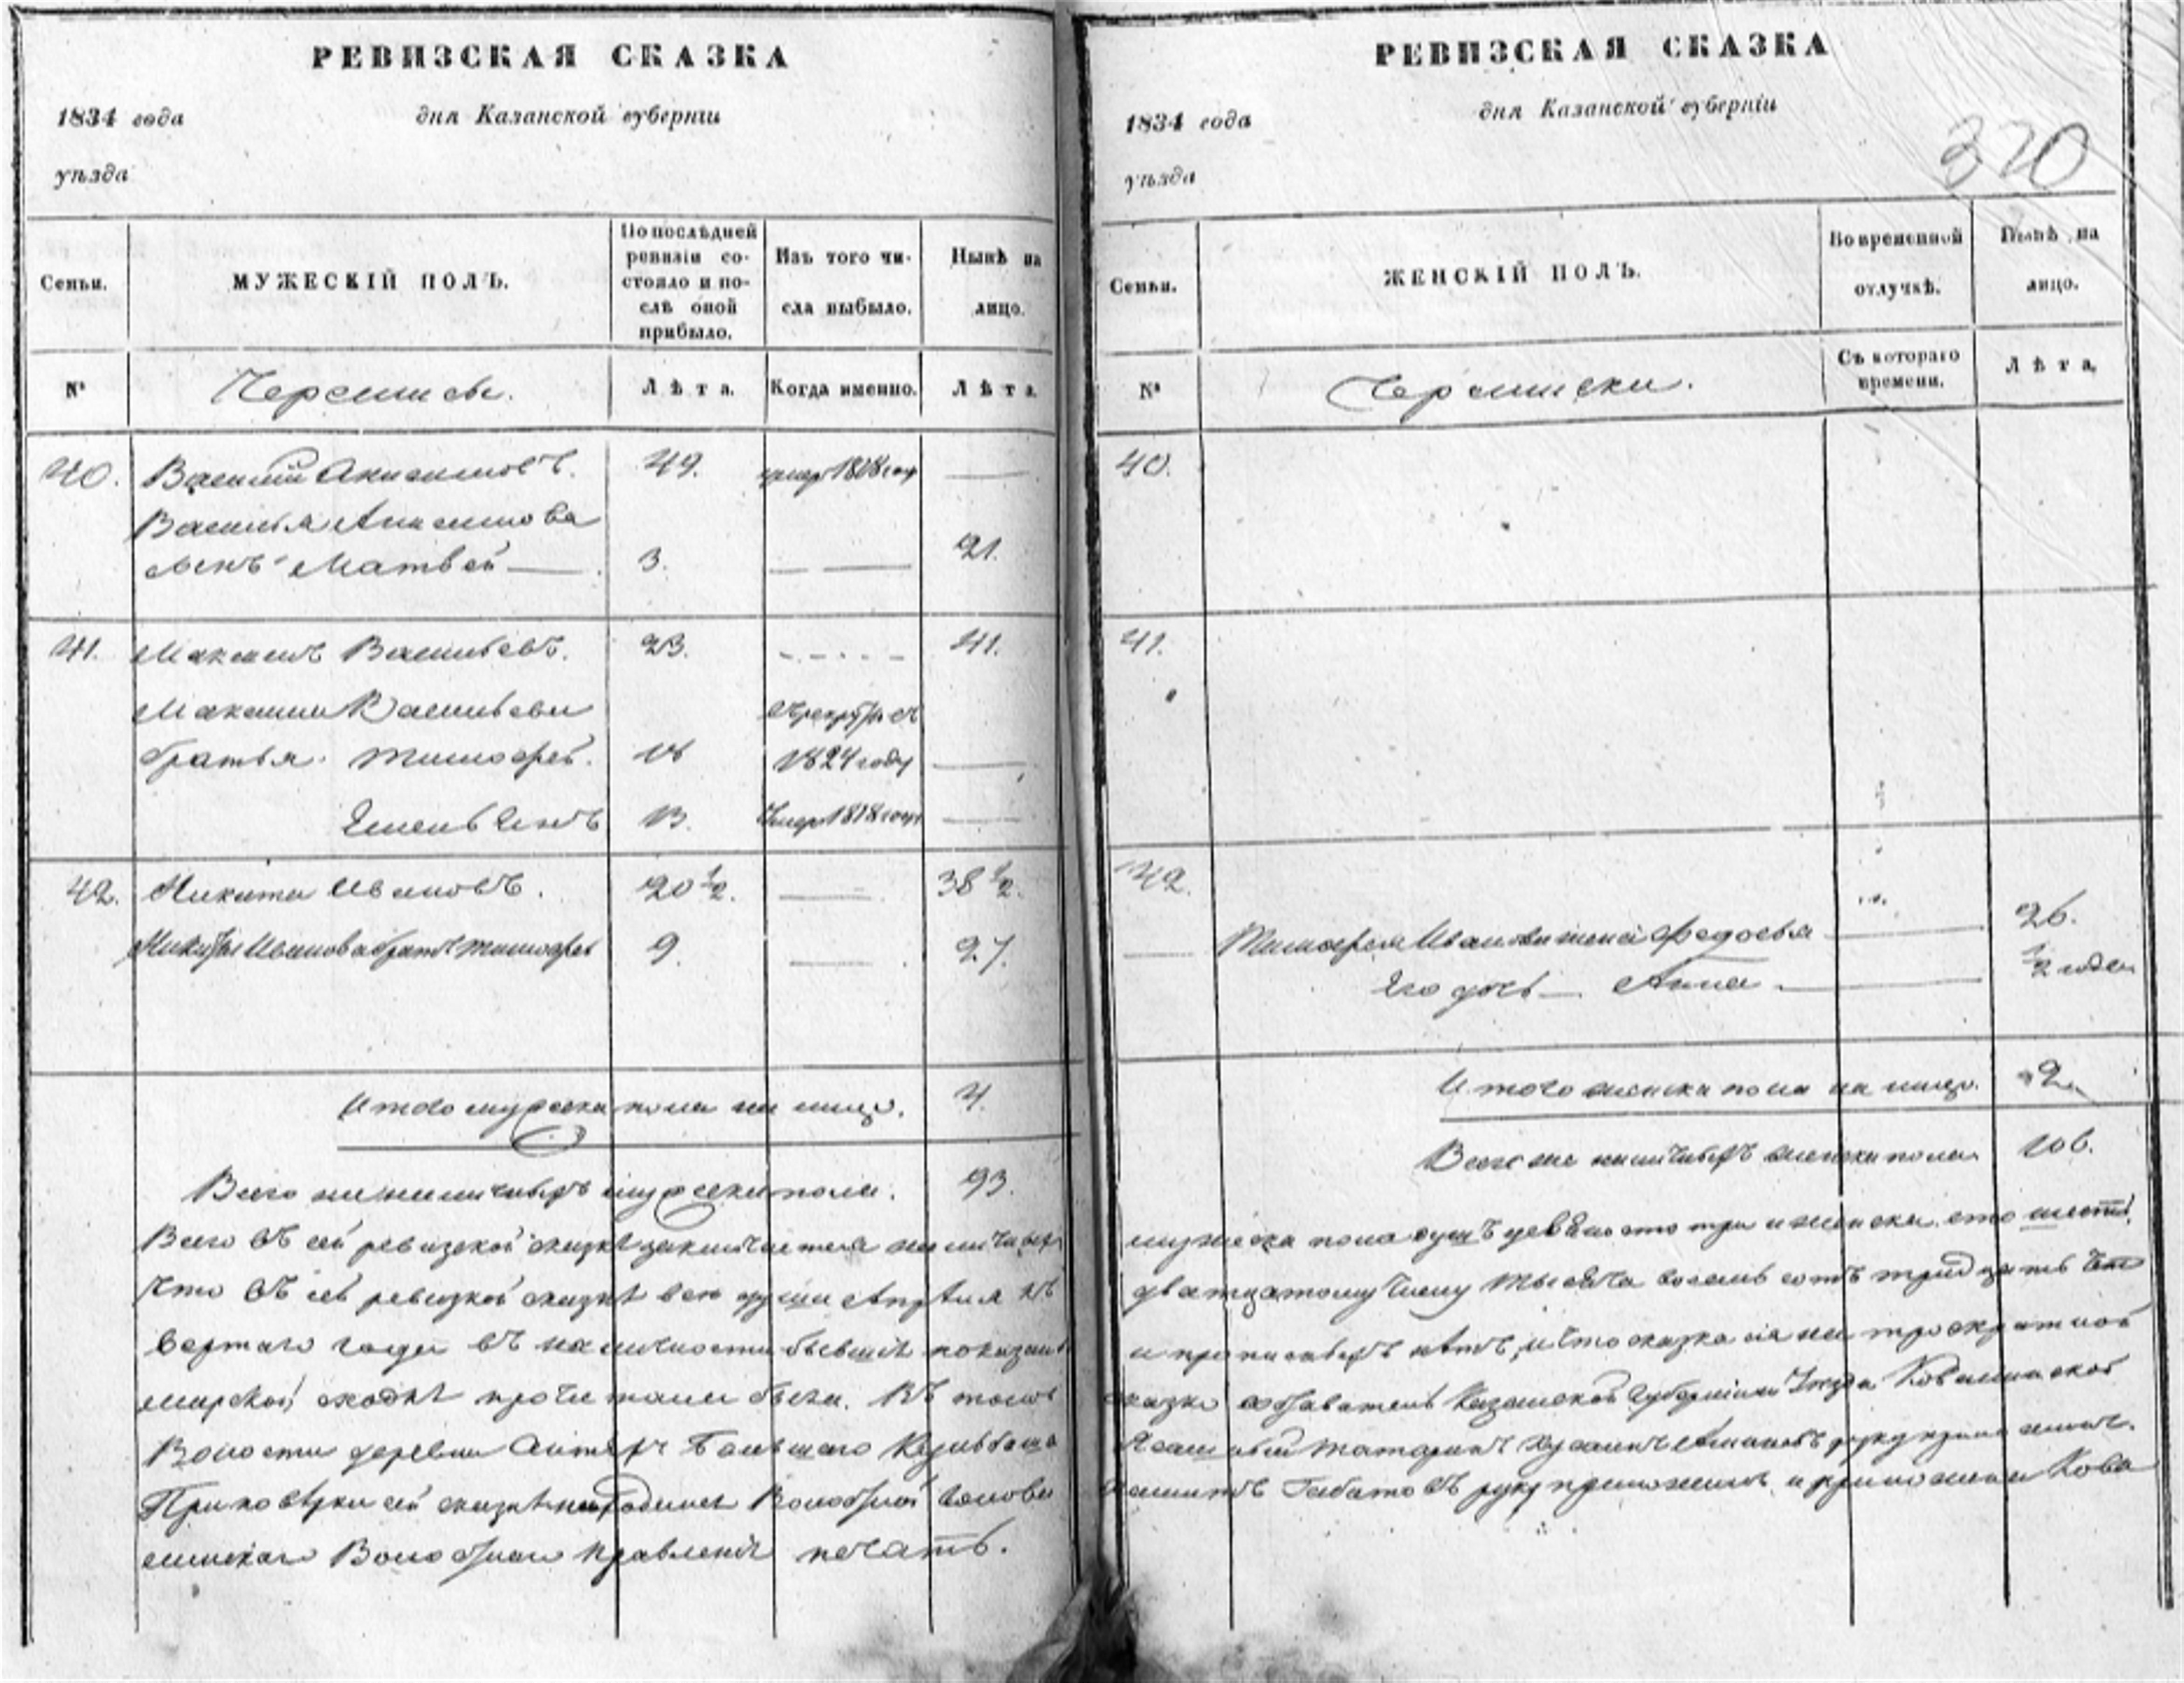 РЕВИЗСКАЯ СКАЗКА
1834 года дня Казанской губерніи
уѣзда
Семьи. МУЖЕСКІЙ ПОЛЪ. По послѣдней ревизіи состояло и послѣ оной прибыло. Изъ того числа выбыло. Нынѣ на лицо.
№ Черемисы. Лѣта. Когда именно. Лѣта.
40. Василий Анисимовъ. 49. умер 1818 году
Василья Анисимова
сынъ Матвей 3. 21.
41. Максимъ Васильевъ. 23. 41.
Максима Васильева
братья Тимофей. 18 1824 году
Емельянъ 13. умер 1818 году
42. Никита Ивановъ. 20 ½. 38 ½.
Никиты Иванова братъ Тимофей 9. 27.
Итого мужеска пола на лицо. 4.
Всего же наличныхъ мужеска пола. 93.
Всего въ сей ревизской сказкѣ заключается наличныхъ
Что въ сей ревизкой сказкѣ все души Апрѣля къ
вертаго года въ наличности бывшіе показаны
мирской сходкѣ прочитана была. Въ томъ
Волости деревни
При поверки сей сказки находился Волостной Голова
Волостнаго Правленія печать.
РЕВИЗСКАЯ СКАЗКА
1834 года дня Казанской губерніи
320
уѣзда
Семьи. ЖЕНСКІЙ ПОЛЪ. Во временной отлучкѣ. Нынѣ на лицо.
№ Черемиски. Съ котораго времени. Лѣта.
40.
41.
42.
Тимофея Иванова жена Федосья 26.
Его дочь Анна ½ года
Итого женска пола на лицо. 2
Всего же наличныхъ женска пола 106.
мужеска пола душъ девяносто три и женска сто шесть.
дватцатому числу тысяча восемь сотъ тридцать чет
и прописныхъ нѣтъ, и что сказка сія на троекратной
сказки Казанской Губерніи Уезда
Ясашный татаринъ руку приложилъ.
руку приложилъ и приложена Кова